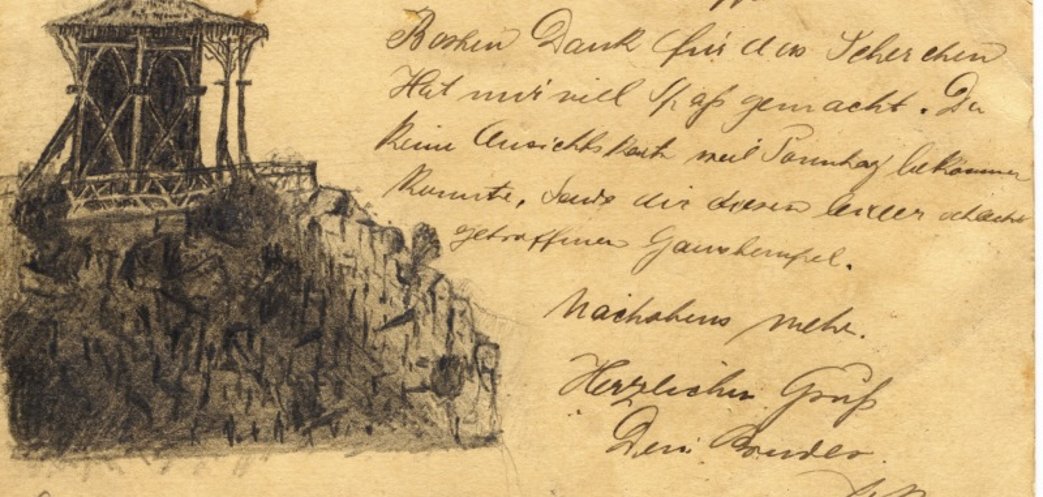 Besten Dank für das Scherchen
Hat mir viell Spaß gemacht. Da
keine Ansichtskarte weil Sonntag bekommen
konnte, sende dir diesen leider schlecht
getroffenen
Nächstens mehr.
Herzlichen Gruß
Dein Bruder